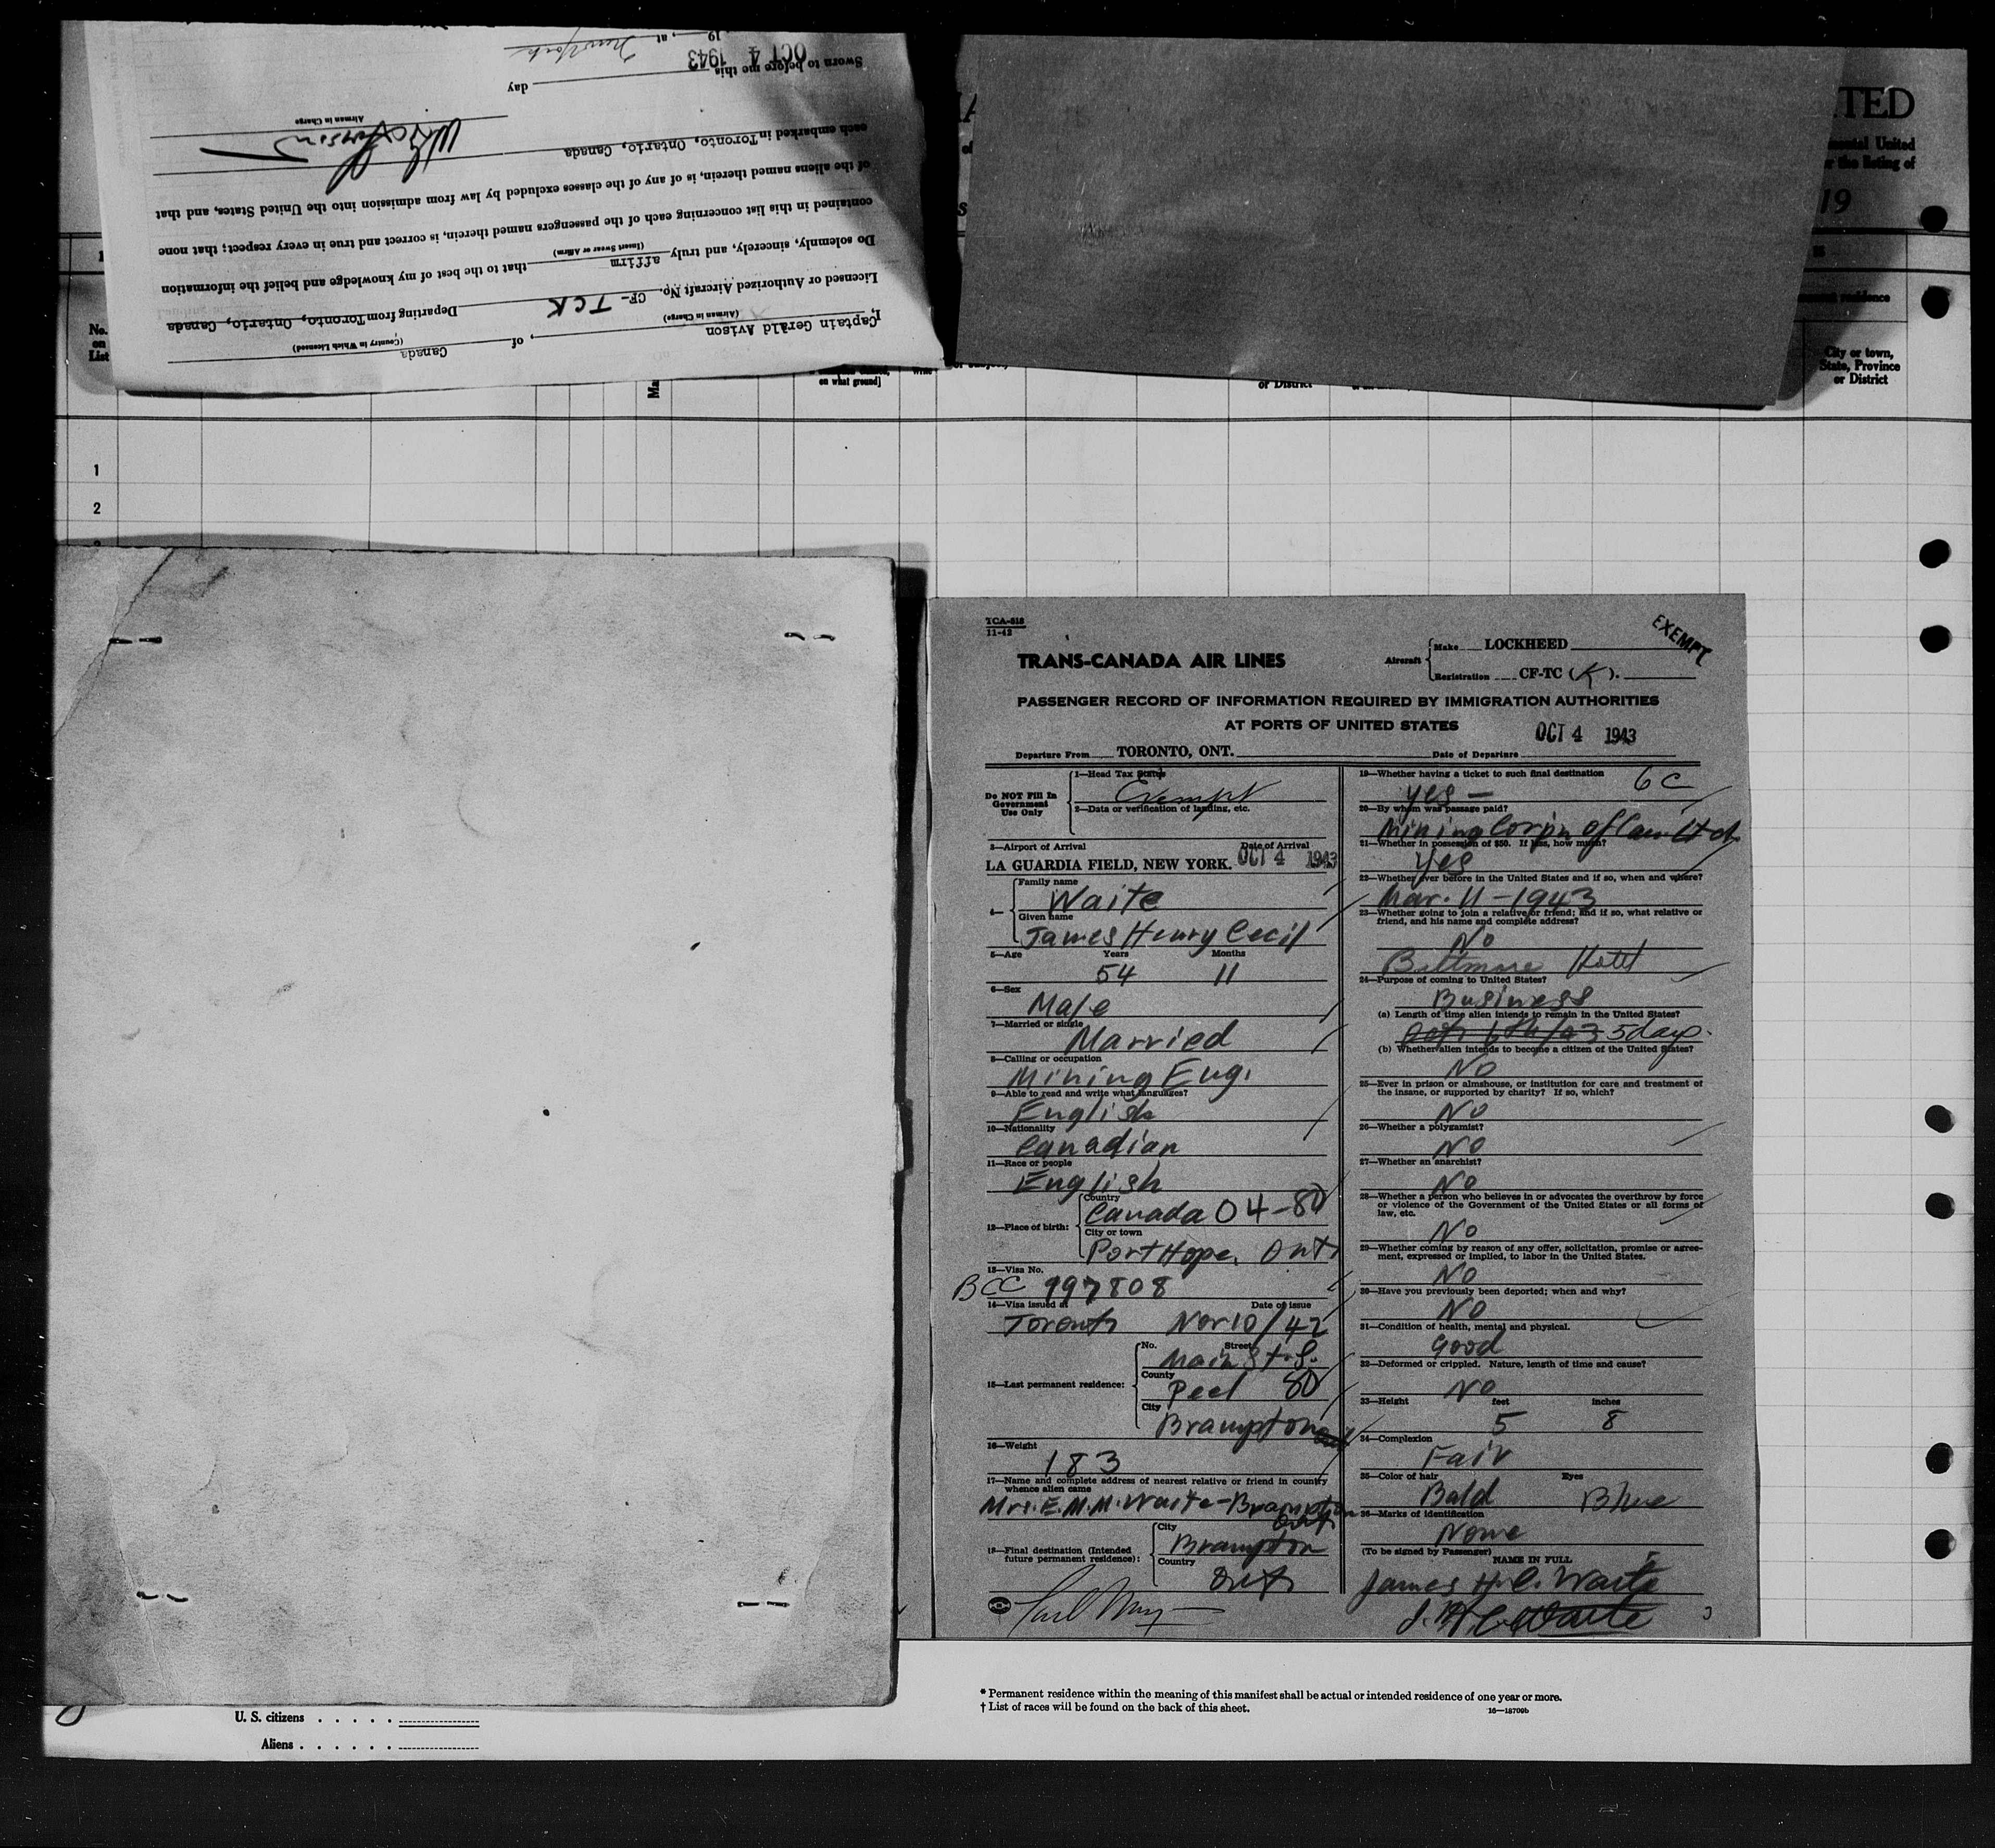 I, Captain Gerald Avison, of Canada
(Airman in Charge) (Country in Which Licensed)
Licensed or Authorized Aircraft No. CF- TCK Departing from Toronto, Ontario, Canada
Do solemnly, sincerely, and truly affirm that to the best of my knowledge and belief the information
(Insert Swear or Affirm)
contained in this list concerning each of the passengers named therein, is correct and true in every respect; that none
of the aliens named therein, is of any of the classes excluded by law from admission into the United States, and that
each embarked in Toronto, Ontario, Canada
Airman in Charge
Sworn to before me this OCT 4 1943 day
19 , at New York
TED
mental United
r the listing of
19
No.
on
List
on what ground]
or District
City or town,
State, Province
or District
1
2
TCA-818
11-42
EXEMPT
TRANS-CANADA AIR LINES
Aircraft
Make LOCKHEED
Registration CF-TC (K).
PASSENGER RECORD OF INFORMATION REQUIRED BY IMMIGRATION AUTHORITIES
AT PORTS OF UNITED STATES
OCT 4 1943
Departure From TORONTO, ONT. Date of Departure
Do NOT Fill In
Government
Use Only
1—Head Tax Status
Exempt
2—Data or verification of landing, etc.
3—Airport of Arrival Date of Arrival
LA GUARDIA FIELD, NEW YORK. OCT 4 1943
4—
Family name
Waite
Given name
James Henry Cecil
5—Age Years Months
54 11
6—Sex
Male
7—Married or single
Married
8—Calling or occupation
Mining Eng.
9—Able to read and write what languages?
English
10—Nationality
Canadian
11—Race or people
English
12—Place of birth:
Country
Canada 04-80
City or town
Port Hope, Ont
13—Visa No.
BCC 997808
14—Visa issued at Date of issue
Toronto Nov 10/42
15—Last permanent residence:
No. Street
Main St. S.
County
Peel 80
City
Brampton Ont
16—Weight
183
17—Name and complete address of nearest relative or friend in country
whence alien came
Mrs. E. M. M. Waite - Brampton
Ont
18—Final destination (Intended
future permanent residence):
City
Brampton
Country
Ont
19—Whether having a ticket to such final destination 6C
Yes —
20—By whom was passage paid?
Mining Corpn of Can Ltd
21—Whether in possession of $50. If less, how much?
Yes
22—Whether ever before in the United States and if so, when and where?
Mar. 11 - 1943
23—Whether going to join a relative or friend; and if so, what relative or
friend, and his name and complete address?
No
Biltmore Hotel
24—Purpose of coming to United States?
Business
(a) Length of time alien intends to remain in the United States?
Oct 6th/43 5 days.
(b) Whether alien intends to become a citizen of the United States?
No
25—Ever in prison or almshouse, or institution for care and treatment of
the insane, or supported by charity? If so, which?
No
26—Whether a polygamist?
No
27—Whether an anarchist?
No
28—Whether a person who believes in or advocates the overthrow by force
or violence of the Government of the United States or all forms of
law, etc.
No
29—Whether coming by reason of any offer, solicitation, promise or agree-
ment, expressed or implied, to labor in the United States.
No
30—Have you previously been deported; when and why?
No
31—Condition of health, mental and physical.
Good
32—Deformed or crippled. Nature, length of time and cause?
No
33—Height feet inches
5 8
34—Complexion
Fair
35—Color of hair Eyes
Bald Blue
36—Marks of identification
None
(To be signed by Passenger)
NAME IN FULL
James H. C. Waite
J. H. C. Waite
* Permanent residence within the meaning of this manifest shall be actual or intended residence of one year or more.
† List of races will be found on the back of this sheet.
16—18709b
U. S. citizens . . . . .
Aliens . . . . . .